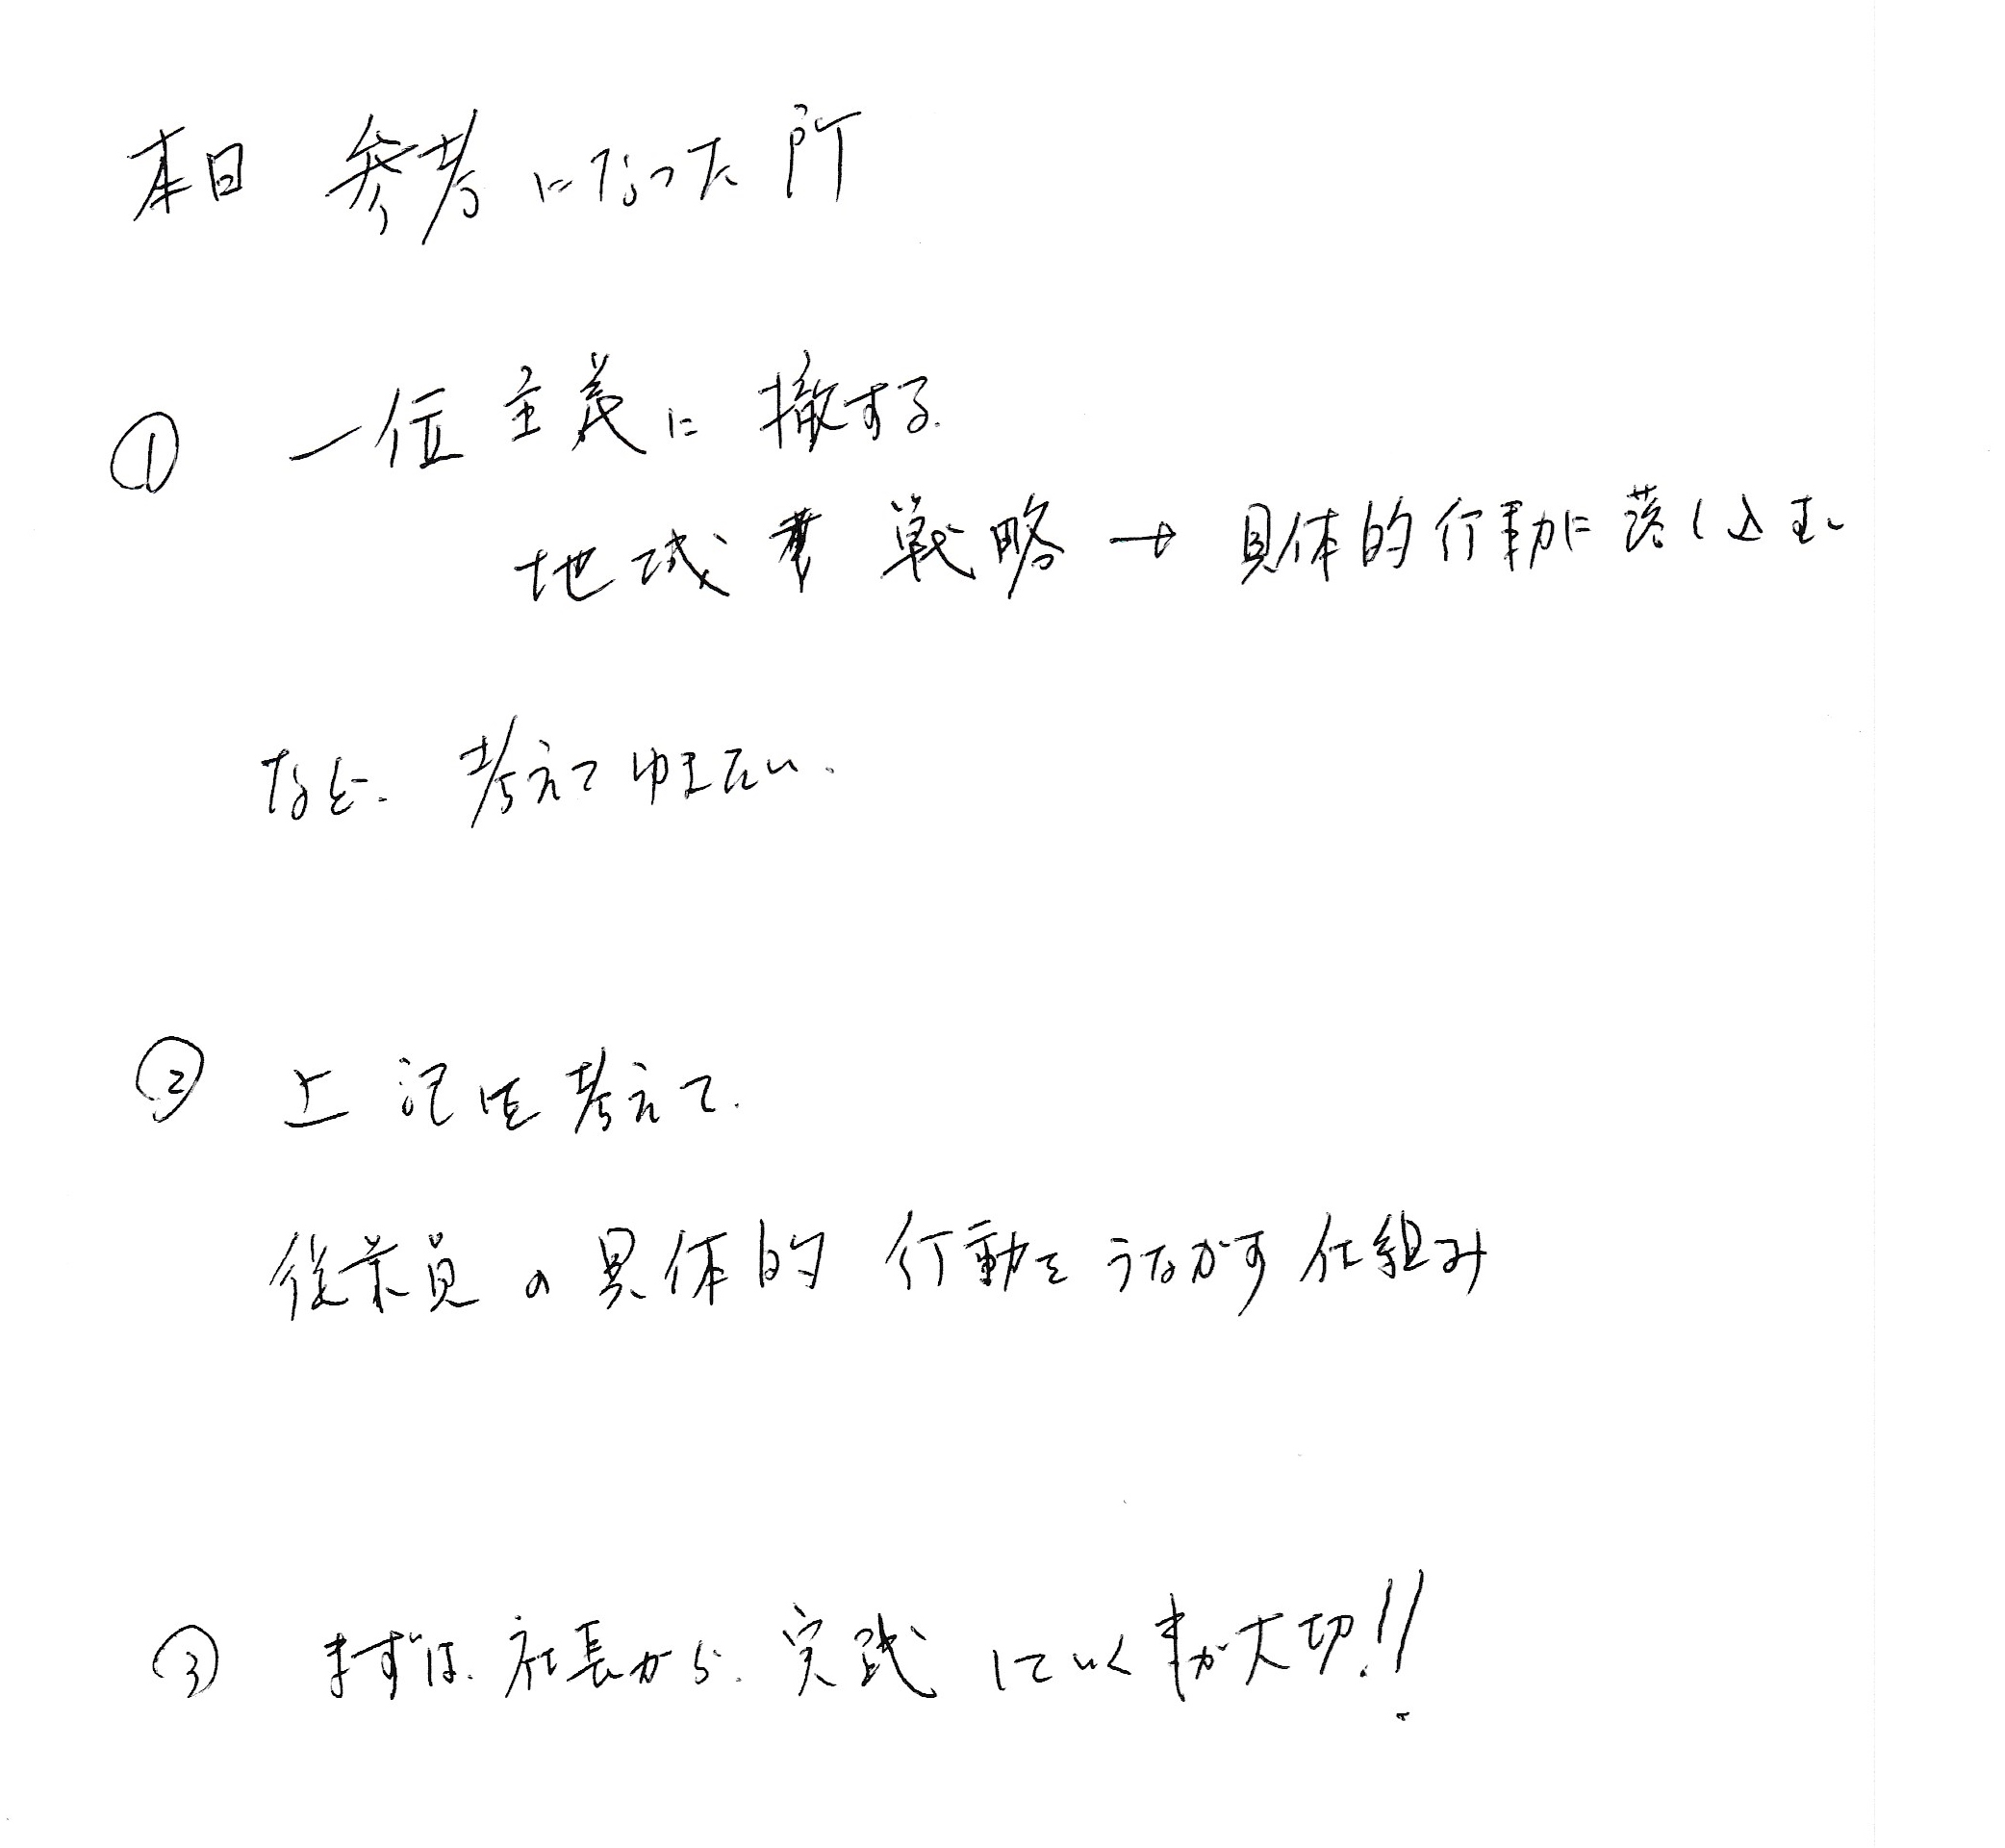 本日 参考になった所
① 一位主義に撤する.
地域 戦略 → 具体的行動に落し込む
など. 考えてゆきたい.
② 上記を考えて.
従業員の具体的行動をうながす仕組み
③ まずは.社長から.実践していく事が大切!!